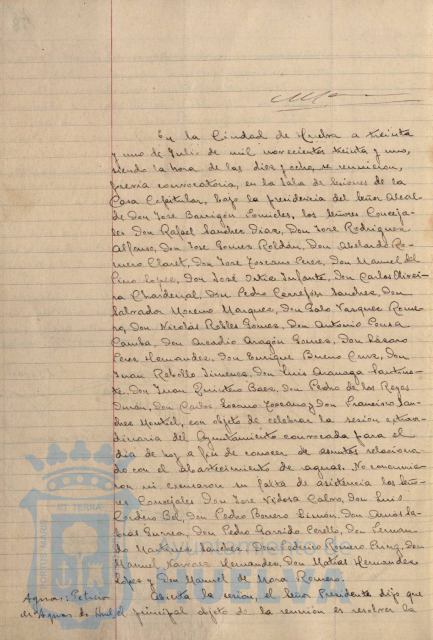 En la Ciudad de Huelva a treinta
y uno de Julio de mil novecientos treinta y uno,
siendo la hora de las diez y ocho, se reunieron,
previa convocatoria, en la Sala de Sesiones de la
Casa Capitular, bajo la presidencia del Señor Alcal-
de Don José Barrigón los Señores Conceja-
les Don Rafael Sanchez Diaz, Don José Rodriguez
Alfonso, Don José Gomez Roldán, Don Abelardo Ro-
mero Claret, Don José Toscano Perez, Don Manuel del
Pino Lopez, Don José Infante, Don Carlos Olivei-
ra Chardenal, Don Pedro Cerrejón Sanchez, Don
Salvador Moreno Marquez, Don Vazquez Rome-
ro, Don Nicolás Robles Gomez, Don Antonio Pousa
Camba, Don Arcadio Aragón Gomez, Don Lázaro
Perez Hernandez, Don Enrique Bueno Cruz, Don
Juan Rebollo Jimenez, Don Luis
Don Juan Quintero Baez, Don Pedro de los Reyes
Don Carlos Toscano y Don Francisco San-
chez con objeto de celebrar la sesión extraor-
dinaria del Ayuntamiento convocada para el
dia de hoy a fin de conocer de asuntos relaciona-
dos con el abastecimiento de aguas. No concurrie-
ron ni excusaron su falta de asistencia los Seño-
res Concejales Don José Calvo, Don Luis
Cordero Bel, Don Pedro Borrero Limón, Don Amós Sa-
brás Gurrea, Don Pedro Garrido Perelló, Don Fernan-
do Sanchez, Don Federico Romero Don
Manuel Hernandez, Don Matías Hernandez
Lopez y Don Manuel de Mora Romero.
Aguas: Abierta la sesión, el Señor Presidente dijo que
Aguas de el principal objeto de la reunión es resolver la